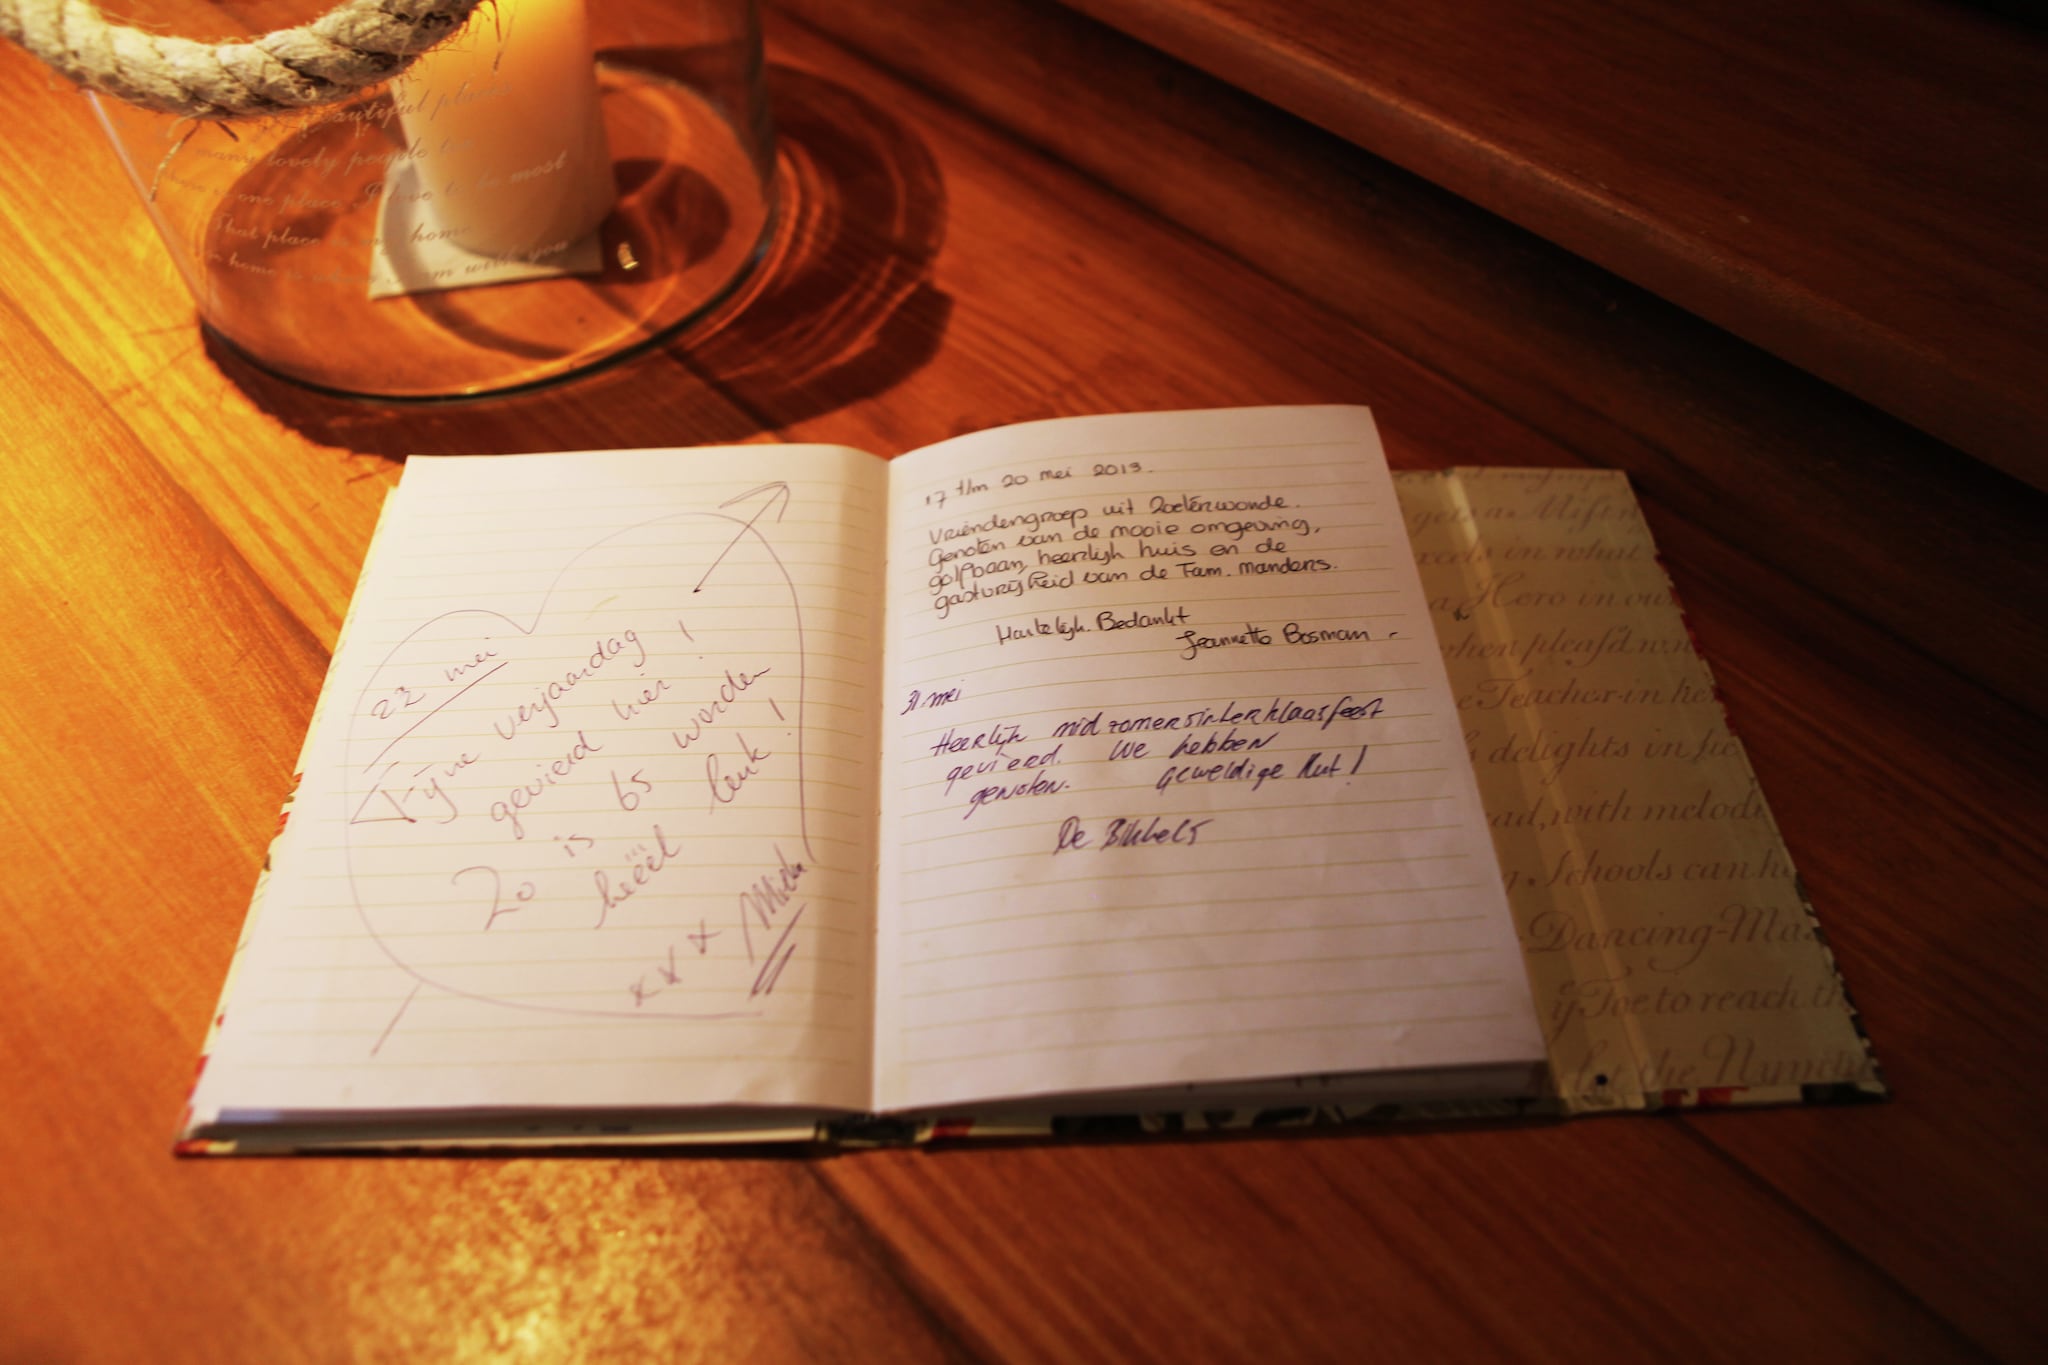 autiful places
many lovely people to
one place I love to be most
That place is my home
home is where I am with you
22 mei
Fijne verjaardag
gevierd hier!
Zo is 65 worden
heéél leuk!
xxx
17 t/m 20 mei 2013.
Vriendengroep uit Zoeterwoude.
Genoten van de mooie omgeving,
golfbaan, heerlijk huis en de
gastvrijheid van de Fam. Manders.
Hartelijk. Bedankt
Jeannette Bosman
31 mei
Heerlijk midzomersinterklaasfeest
gevierd. We hebben
genoten. Geweldige Hut!
De Bikkels
gets a Mift
in what
a Hero in our
when pleas'd
e Teacher in her
delights in
ad, with melodi
Schools can
Dancing-Mas
Toe to reach th
let the